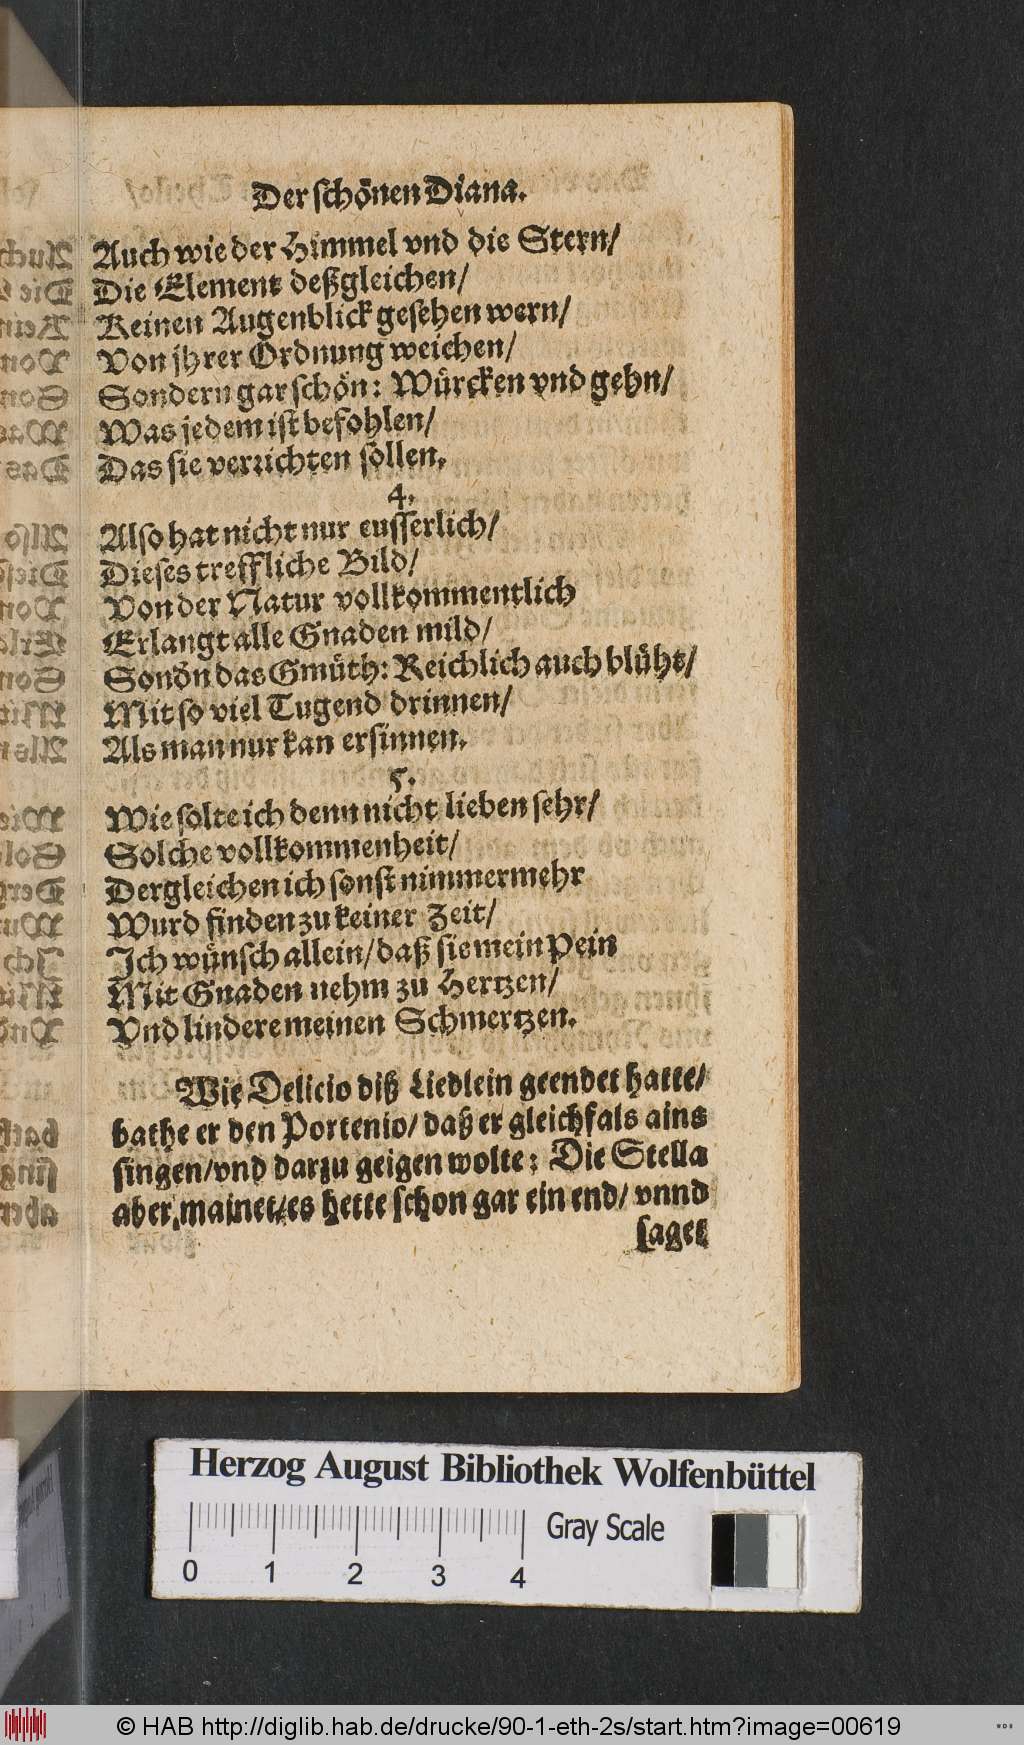 Der schönen Diana.
Auch wie der Himmel vnd die Stern/
Die Element deßgleichen/
Keinen Augenblick gesehen wern/
Von jhrer Ordnung weichen/
Sondern gar schön: Würcken vnd gehn/
Was jedem ist befohlen/
Das sie verrichten sollen.
4.
Also hat nicht nur eusserlich/
Dieses treffliche Bild/
Von der Natur vollkommentlich
Erlangt alle Gnaden mild/
Sondn das Gmüth: Reichlich auch blüht/
Mit so viel Tugend drinnen/
Als man nur kan ersinnen.
5.
Wie solte ich denn nicht lieben sehr/
Solche vollkommenheit/
Dergleichen ich sonst nimmermehr
Wurd finden zu keiner Zeit/
Ich wünsch allein/ daß sie mein Pein
Mit Gnaden nehm zu Hertzen/
Vnd lindere meinen Schmertzen.
Wie Delicio diß Liedlein geendet hatte/
bathe er den Portenio/ daß er gleichfals ains
singen/ vnd darzu geigen wolte: Die Stella
aber, mainet/ es hette schon gar ein end/ vnnd
saget
Herzog August Bibliothek Wolfenbüttel
Gray Scale
0 1 2 3 4
© HAB http://diglib.hab.de/drucke/90-1-eth-2s/start.htm?image=00619